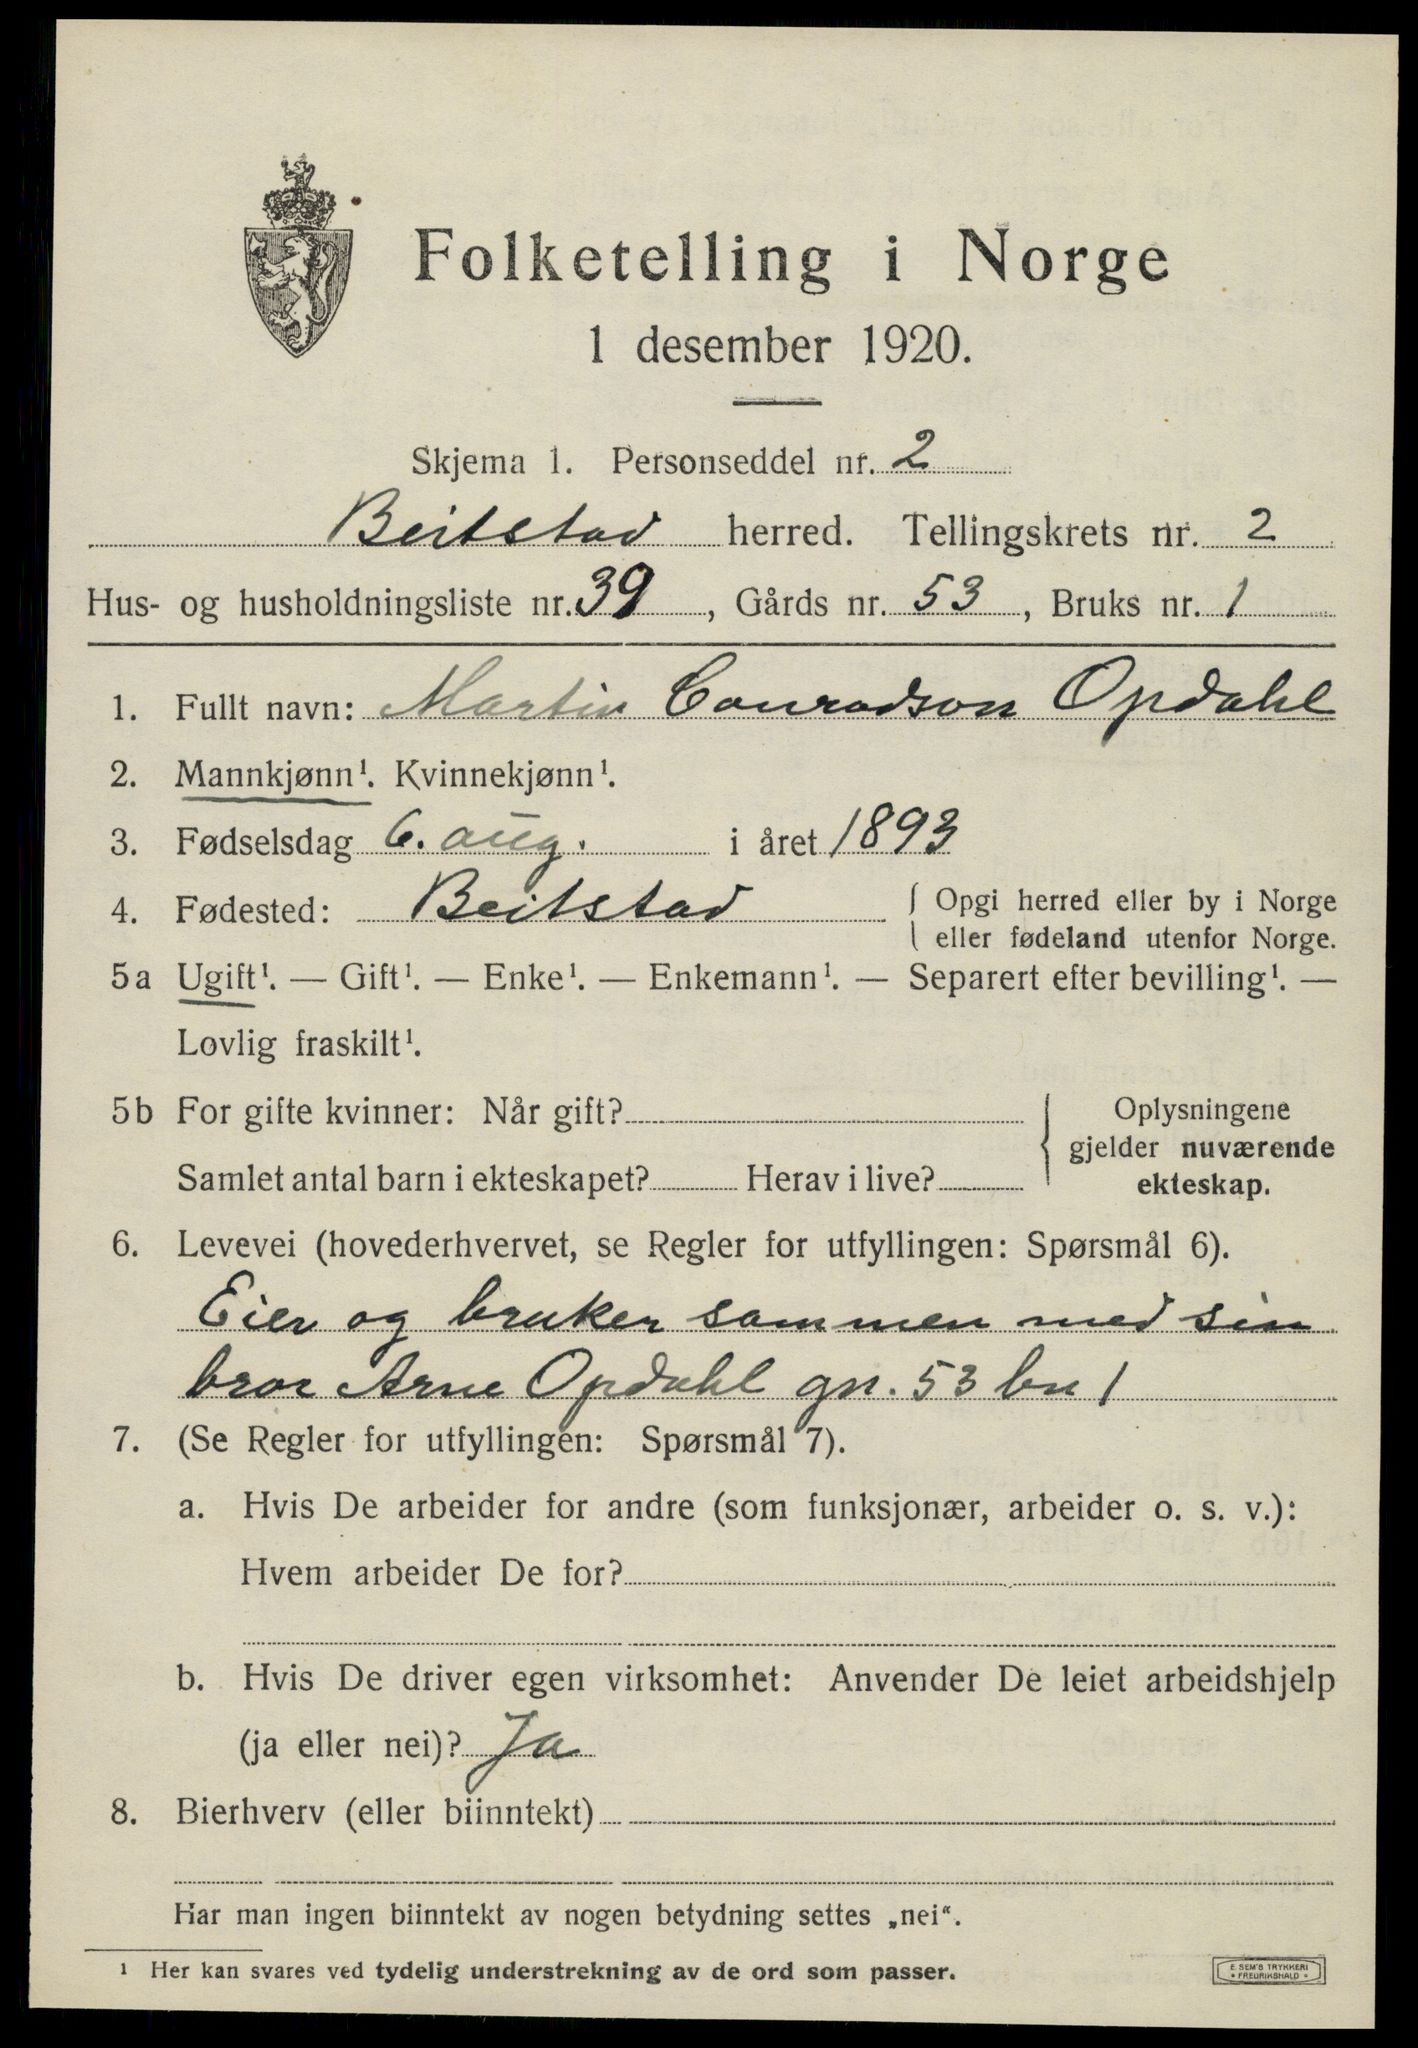 Folketelling i Norge
1 desember 1920.
Skjema 1. Personseddel nr. 2
Beitstad herred. Tellingskrets nr. 2
Hus- og husholdningsliste nr. 39, Gårds nr. 53, Bruks nr. 1
1. Fullt navn: Martin Conradson Opdahl
2. Mannkjønn¹. Kvinnekjønn¹.
3. Fødselsdag 6. aug. i året 1893
4. Fødested: Beitstad { Opgi herred eller by i Norge
eller fødeland utenfor Norge.
5a Ugift¹. — Gift¹. — Enke¹. — Enkemann¹. — Separert efter bevilling¹. —
Lovlig fraskilt¹.
5b For gifte kvinner: Når gift? { Oplysningene
gjelder nuværende
Samlet antal barn i ekteskapet? Herav i live? ekteskap.
6. Levevei (hovederhvervet, se Regler for utfyllingen: Spørsmål 6).
Eier og bruker sammen med sin
bror Arne Opdahl gn. 53 bn 1
7. (Se Regler for utfyllingen: Spørsmål 7).
a. Hvis De arbeider for andre (som funksjonær, arbeider o. s. v.):
Hvem arbeider De for?
b. Hvis De driver egen virksomhet: Anvender De leiet arbeidshjelp
(ja eller nei)? Ja
8. Bierhverv (eller biinntekt)
Har man ingen biinntekt av nogen betydning settes „nei“.
¹ Her kan svares ved tydelig understrekning av de ord som passer.
E. SEM'S TRYKKERI
• FREDRIKSHALD •